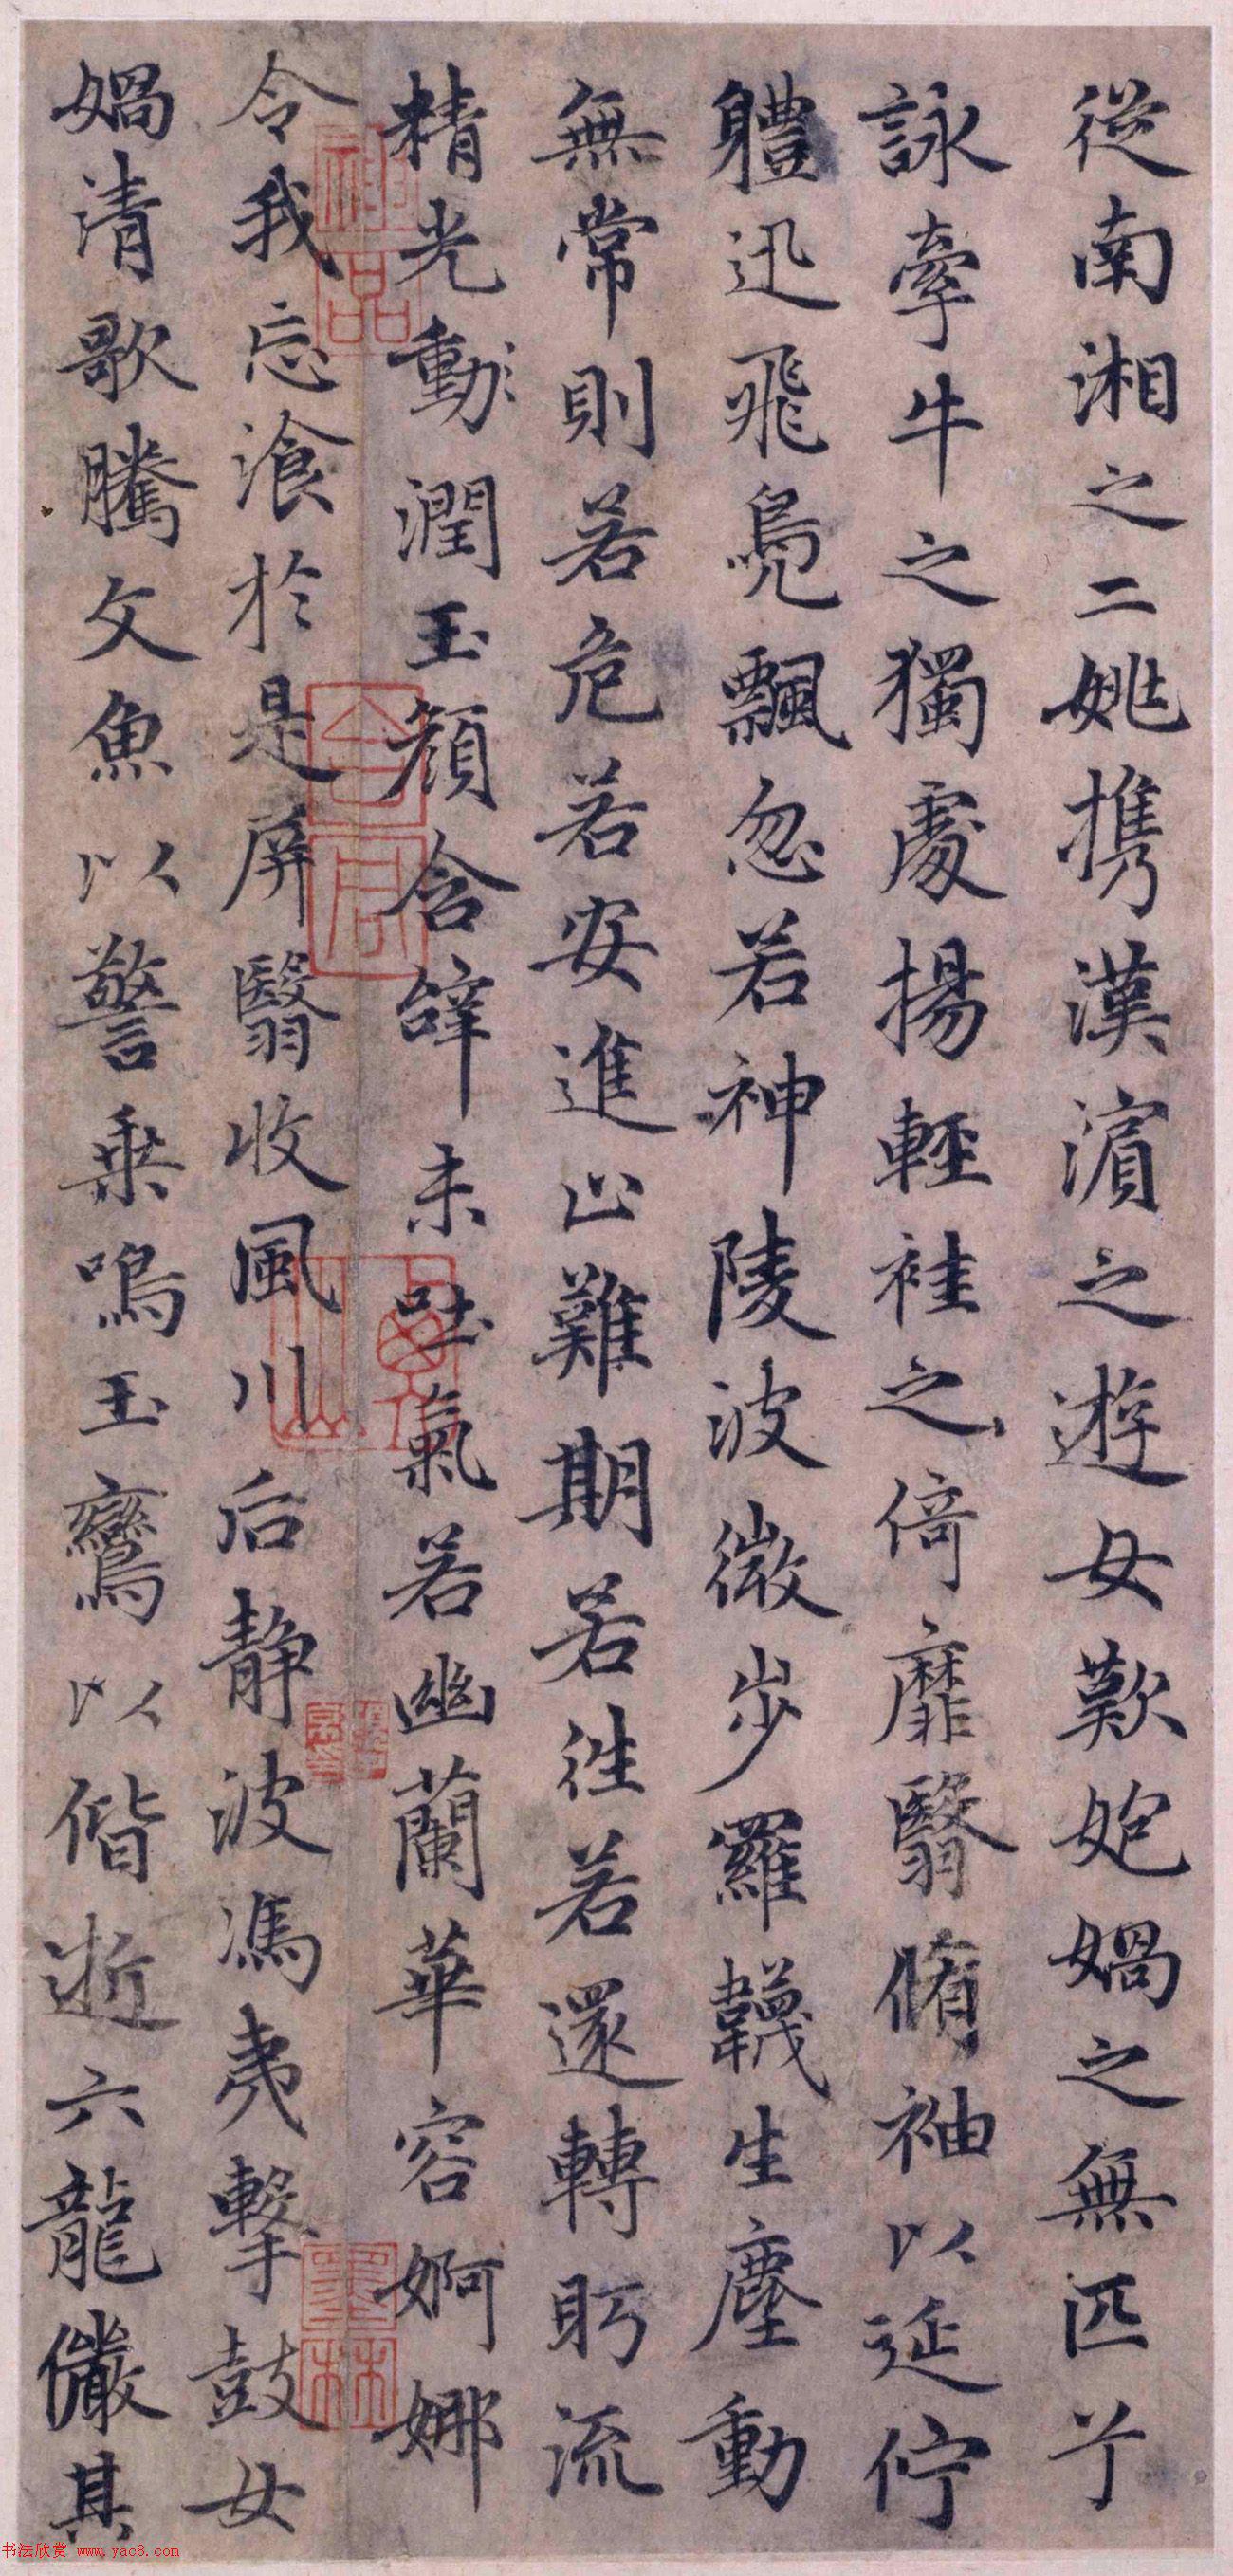 從南湘之二姚携漢濵之遊女歎妑媧之無匹兮
詠牽牛之獨處揚輕袿之倚靡翳脩袖以延佇
軆迅飛鳧飄忽若神陵波微步羅韈生塵動
無常則若危若安進止難期若往若還轉眄流
精光動潤玉顔含辭未吐氣若幽蘭華容婀娜
令我忘湌於是屏翳收風川后静波馮夷擊鼓女
媧清歌騰文魚以警乗鳴玉鸞以偕逝六龍儼其
神品
墨林
书法欣赏 www.yac8.com